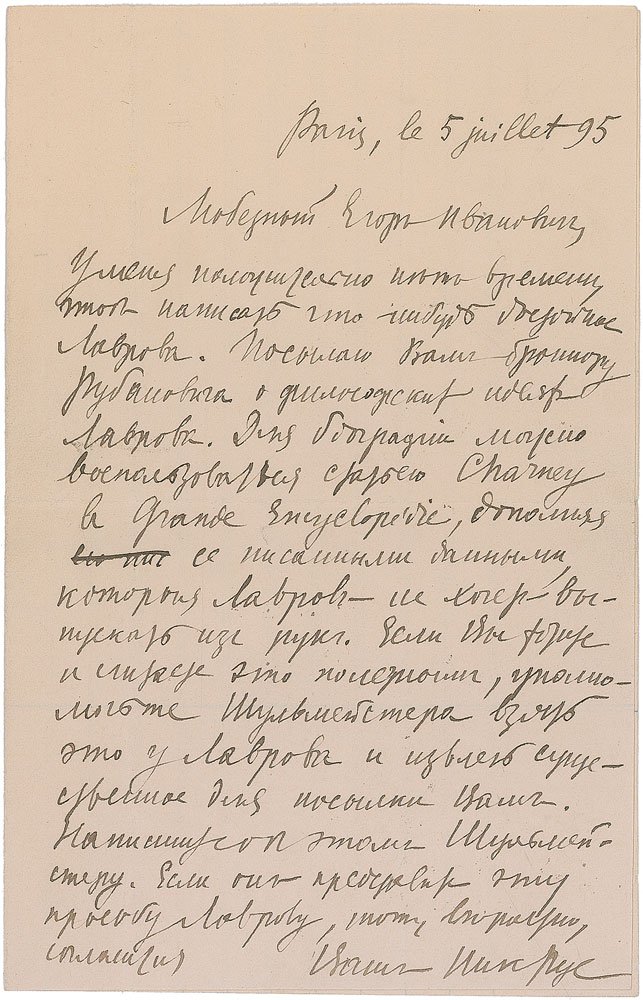 Paris, le 5 juillet 95
Любезный Егоръ Ивановичъ,
У меня положительно нѣтъ времени,
чтобъ написать что нибудь достойное
Лаврова. Посылаю Вамъ брошюру
Рубановича о философских идеях
Лаврова. Для біографіи можно
воспользоваться статьею Charney
la Grande Encyclopédie, дополняя
ее писанными данными,
которыя Лавровъ не хочетъ вы-
пускать изъ рукъ. Если Вы
и считаете это полезнымъ, уполно-
мочьте Шульмейстера взять
это у Лаврова и извлечь суще-
ственное для посылки Вамъ.
Напишите объ этомъ Шульмей-
стеру. Если онъ представит эту
просьбу Лаврову, тотъ, вѣроятно,
согласится Вашъ Ник Рус